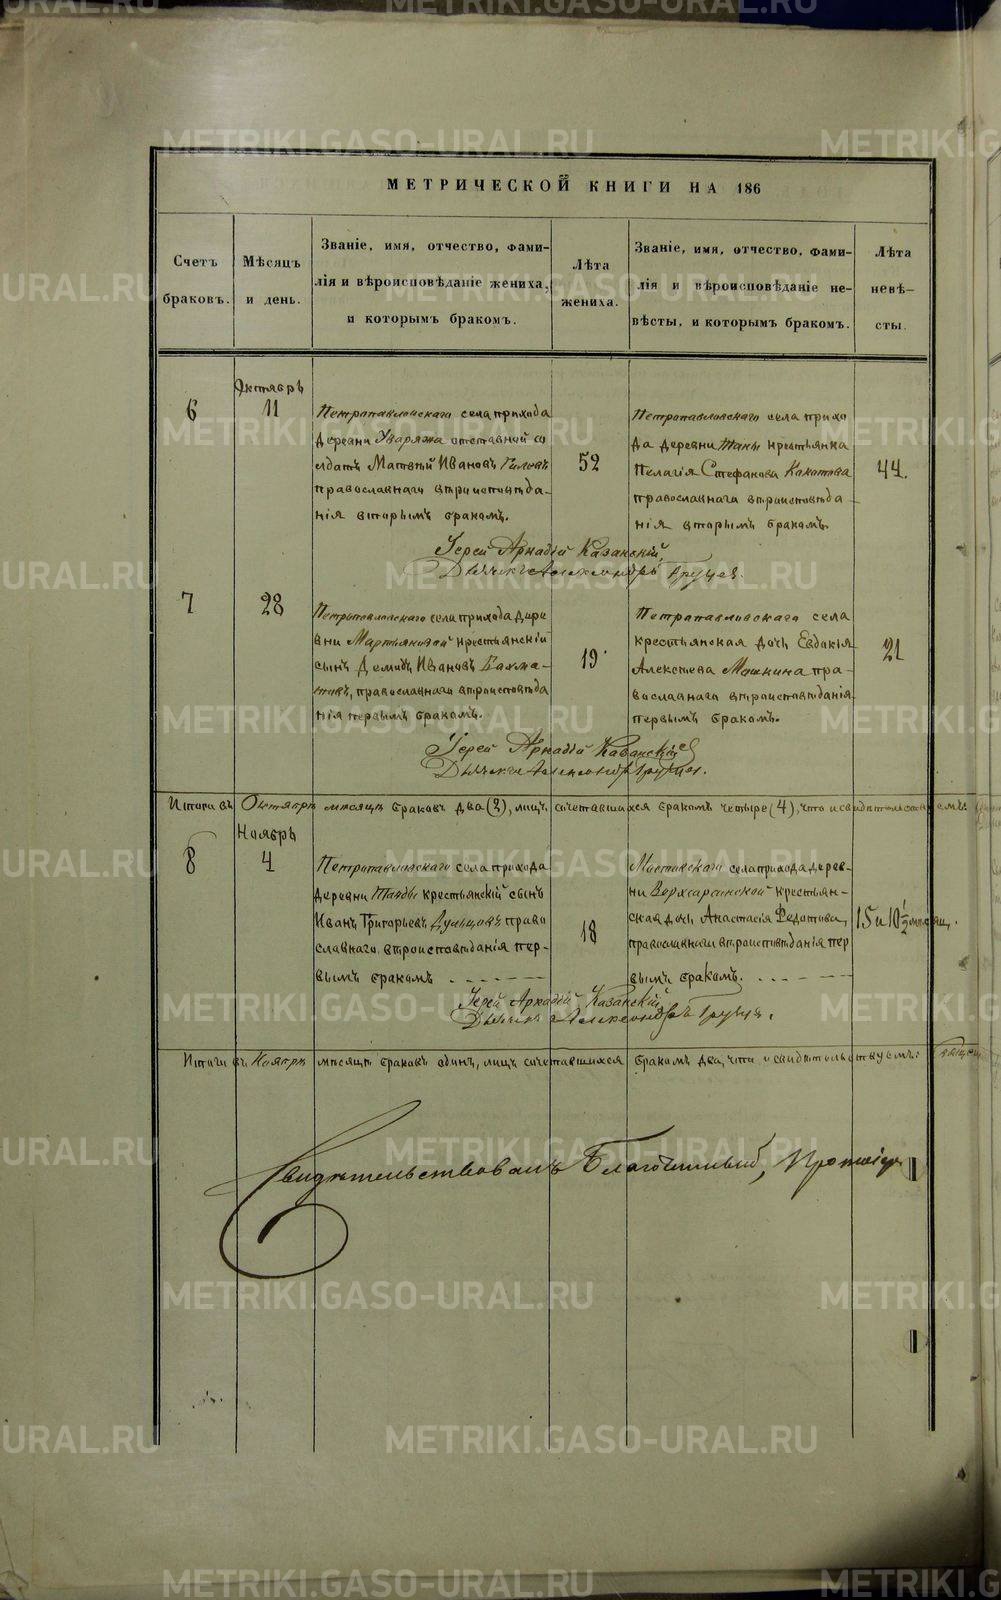 МЕТРИЧЕСКОЙ КНИГИ НА 186
Счетъ
браковъ.
Мѣсяцъ
и день.
Званіе, имя, отчество, фами-
лія и вѣроисповѣданіе жениха,
и которымъ бракомъ.
Лѣта
жениха.
Званіе, имя, отчество, фами-
лія и вѣроисповѣданіе не-
вѣсты, и которымъ бракомъ.
Лѣта
невѣ-
сты.
Октябрь
6
11
Петропавловскаго села прихода
деревни Уваряжа отставной со
лдатъ Матвѣй Ивановъ
православнаго вѣроисповѣда-
нія вторымъ бракомъ.
52
Петропавловскаго села прихо
да деревни крестьянка
Пелагія Стефанова
православнаго вѣроисповѣда-
нія вторымъ бракомъ.
44.
Іерей Аркадій Казанскій,
Дьячекъ Александръ
7
28
Петропавловскаго села прихода дере
вни Мартьяновой крестьянскій
сынъ Демидъ Ивановъ
православнаго вѣроисповѣда
нія первымъ бракомъ.
19
Петропавловскаго села
крестьянская дочь Евдокія
Алексѣева Машкина пра-
вославнаго вѣроисповѣданія
первымъ бракомъ.
21
Іерей Аркадій Казанскій
Дьячекъ Александръ
Итого въ Октябрѣ мѣсяцѣ браковъ два (2), лицъ, сочетавшихся бракомъ четыре (4), что и свидѣтельствуемъ:
Ноябрь
8
4
Петропавловскаго села прихода
деревни крестьянскій сынъ
Иванъ Григорьевъ право
славнаго вѣроисповѣданія пер-
вымъ бракомъ
18
села прихода дерев-
ни крестьян-
ская дочь Анастасія Федотова,
православнаго вѣроисповѣданія пер
вымъ бракомъ.
15 и 10 1/2 мѣсяц.
Іерей Аркадій Казанскій
Дьячекъ Александръ
Итого въ Ноябрѣ мѣсяцѣ браковъ одинъ, лицъ сочетавшихся бракомъ два, что и свидѣтельствуемъ:
Свидѣтельствовалъ Благочинный, Протоіер
METRIKI.GASO-URAL.RU